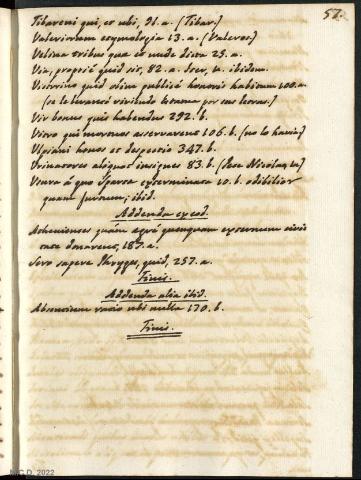 57.
Tibareni qui, et ubi, 91. a. (Tibar.)
Valeriorum etymologia 13. a. (Valeros.)
Velina tribus qua et unde dicta 25. a.
Via, propriè quid sit, 82. a. docr, n. ibidem.
Victorino quid olim publicè honoris habitum 100. a.
(se le levantó viviendo estatua por sus letras.)
Vir bonus quis habendus 292. b.
Vitro qui mortuos asservarent 106. b. (no lo havia)
Ulpiani honos et despectio 347. b.
Urinatores aliquot insignes 83. b. (Pece Nicolao, n)
Usura á quo Sparta exterminata 10. b. odibilior
quam furtum; ibid.
Addenda ex eod.
Athenienses quàm aegrè quenquam externum civi-
tate donarent, 187. a.
Sero sapere Phryges, quid, 257. a.
Finis.
Addenda alia ibid.
Absentium ratio ubi nulla 170. b.
Finis.
M.C.D. 2022